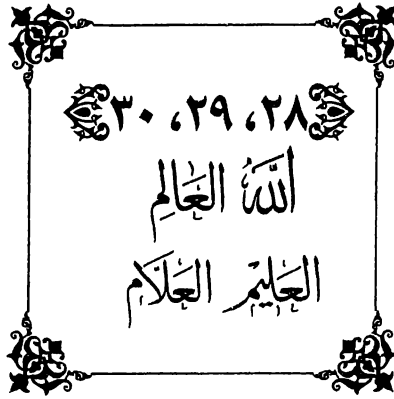 ٢٨، ٢٩، ٣٠
اللَّهُ العَالِم
العَلِيْم العَلَّام